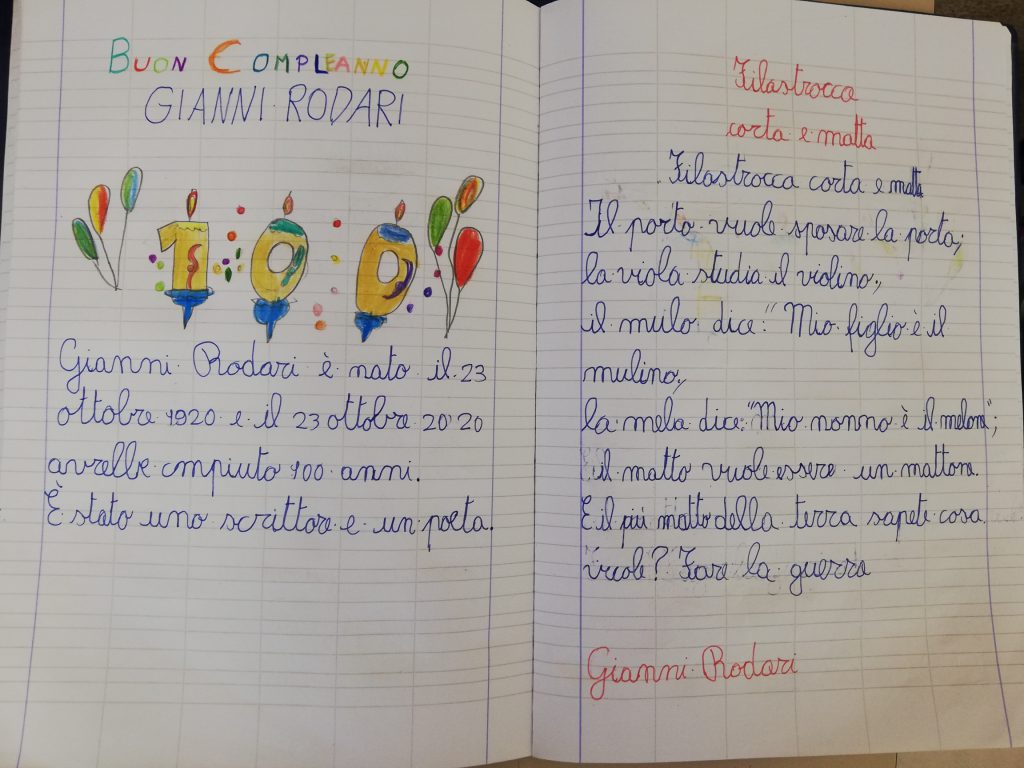 BUON COMPLEANNO
GIANNI RODARI
100
Gianni Rodari è nato il 23
ottobre 1920 e il 23 ottobre 2020
avrebbe cmpiuto 100 anni.
È stato uno scrittore e un poeta.
Filastrocca
corta e matta
Filastrocca corta e matta
Il porto vuole sposare la porta;
la viola studia il violino,
il mulo dice: "Mio figlio è il
mulino,
la mela dice: "Mio nonno è il melone";
il matto vuole essere un mattone.
E il più matto della terra sapete cosa
vuole? Fare la guerra
Gianni Rodari